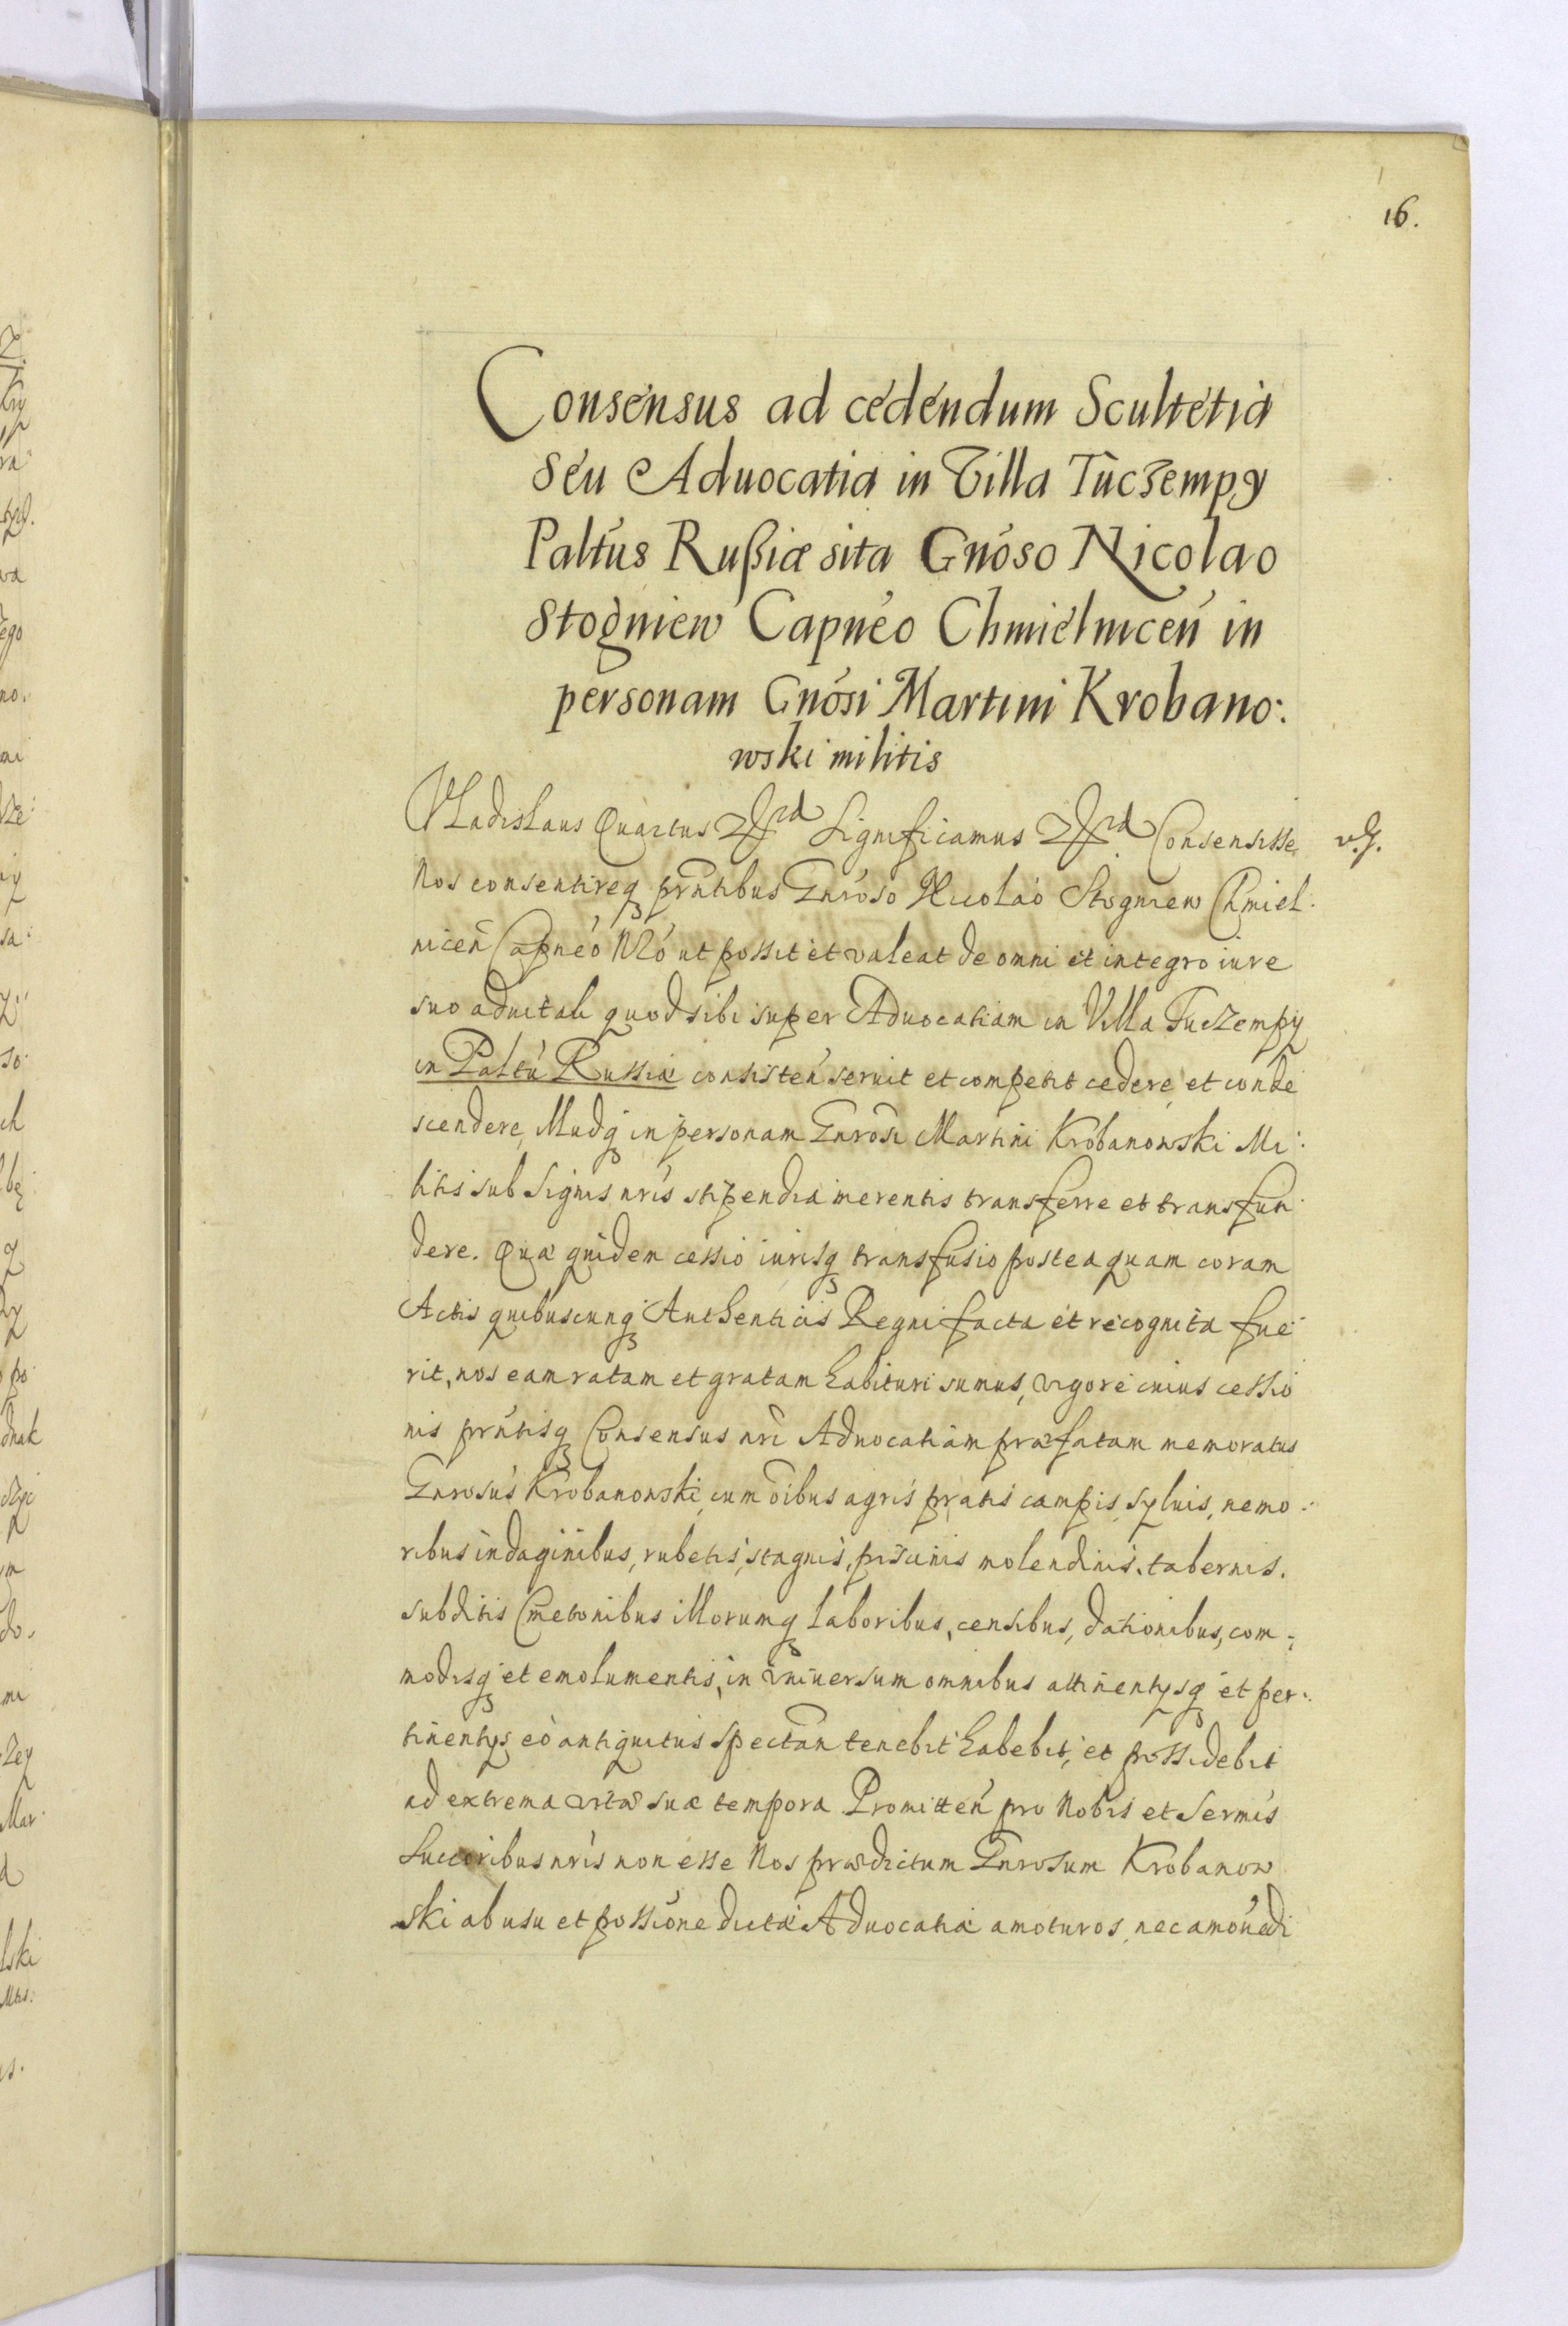 16.
Consensus ad cedendum Scultetia
seu Aduocatia in Villa Tuczempy
Paltus Rußiæ sita Gnoso Nicolao
Stogniew Capneo Chmielnicen in
personam Gnosi Martini Krobano:
wski militis
Vladislaus Quartus Significamus Consensisse
Nos consentireq prntibus Gnroso Nicolao Stogniew Chmiel:
nicen Capneo Nro ut possit et valeat de omni et integro iure
suo aduitali quod sibi super Aduocatiam in Villa Tuczempy
in Paltu Russiæ consisten seruit et competit cedere et conde
scendere, Illudq in personam Gnrosi Martini Krobanowski Mi:
litis sub Signis nris stipendia merentis transferre et transfun
dere. Quæ quidem cessio iurisq transfusio postea quam coram
Actis quibuscunq Authenticis Regni facta et recognita fue
rit, nos eam ratam et gratam habituri sumus, vigore cuius cessio
nis prntisq Consensus nri Aduocatiam præfatam memoratus
Gnrosus Krobanowski, cum oibus agris pratis campis, syluis, nemo:
ribus indaginibus, rubetis, stagnis, piscinis molendinis, tabernis.
subditis Cmetonibus illorumq laboribus, censibus, dationibus, com:
modisq et emolumentis, in vniuersum omnibus attinentysq et per:
tinentys eo antiquitus spectan tenebit habebit, et possidebit
ad extrema vitæ suæ tempora Promitten pro Nobis et Sermis
Succoribus nris non esse Nos prædictum Gnrosum Krobanow
ski ab usu et possione dictæ Aduocatiæ amoturos, nec amouedi